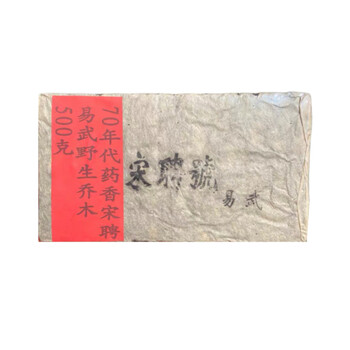 70年代药香宋聘
易武野生乔木
500克
宋聘號
易武